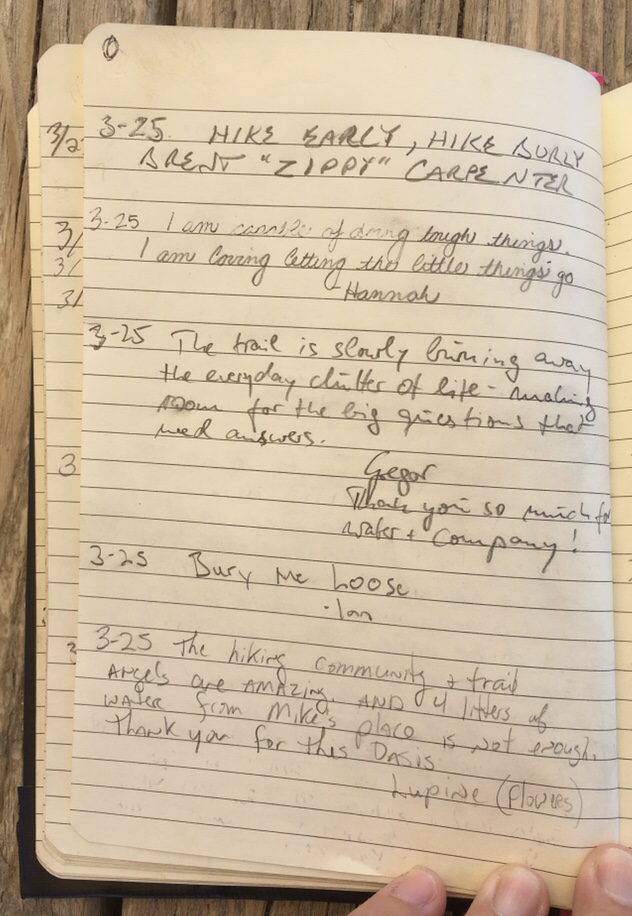 0
3-25 HIKE EARLY, HIKE BURLY
BRENT "ZIPPY" CARPENTER
3-25 I am capable of doing tough things.
I am loving letting the little things go
Hannah
3-25 The trail is slowly burning away
the everyday clutter of life - making
room for the big questions that
need answers.
Gregor
Thank you so much for
water + company!
3-25 Bury Me Loose
-Ian
3-25 The hiking community + trail
Angels are AMAZING AND 4 liters of
water from Mike's place is not enough.
Thank you for this Oasis
Lupine (flowers)
3/2
3/
3/
3/
3